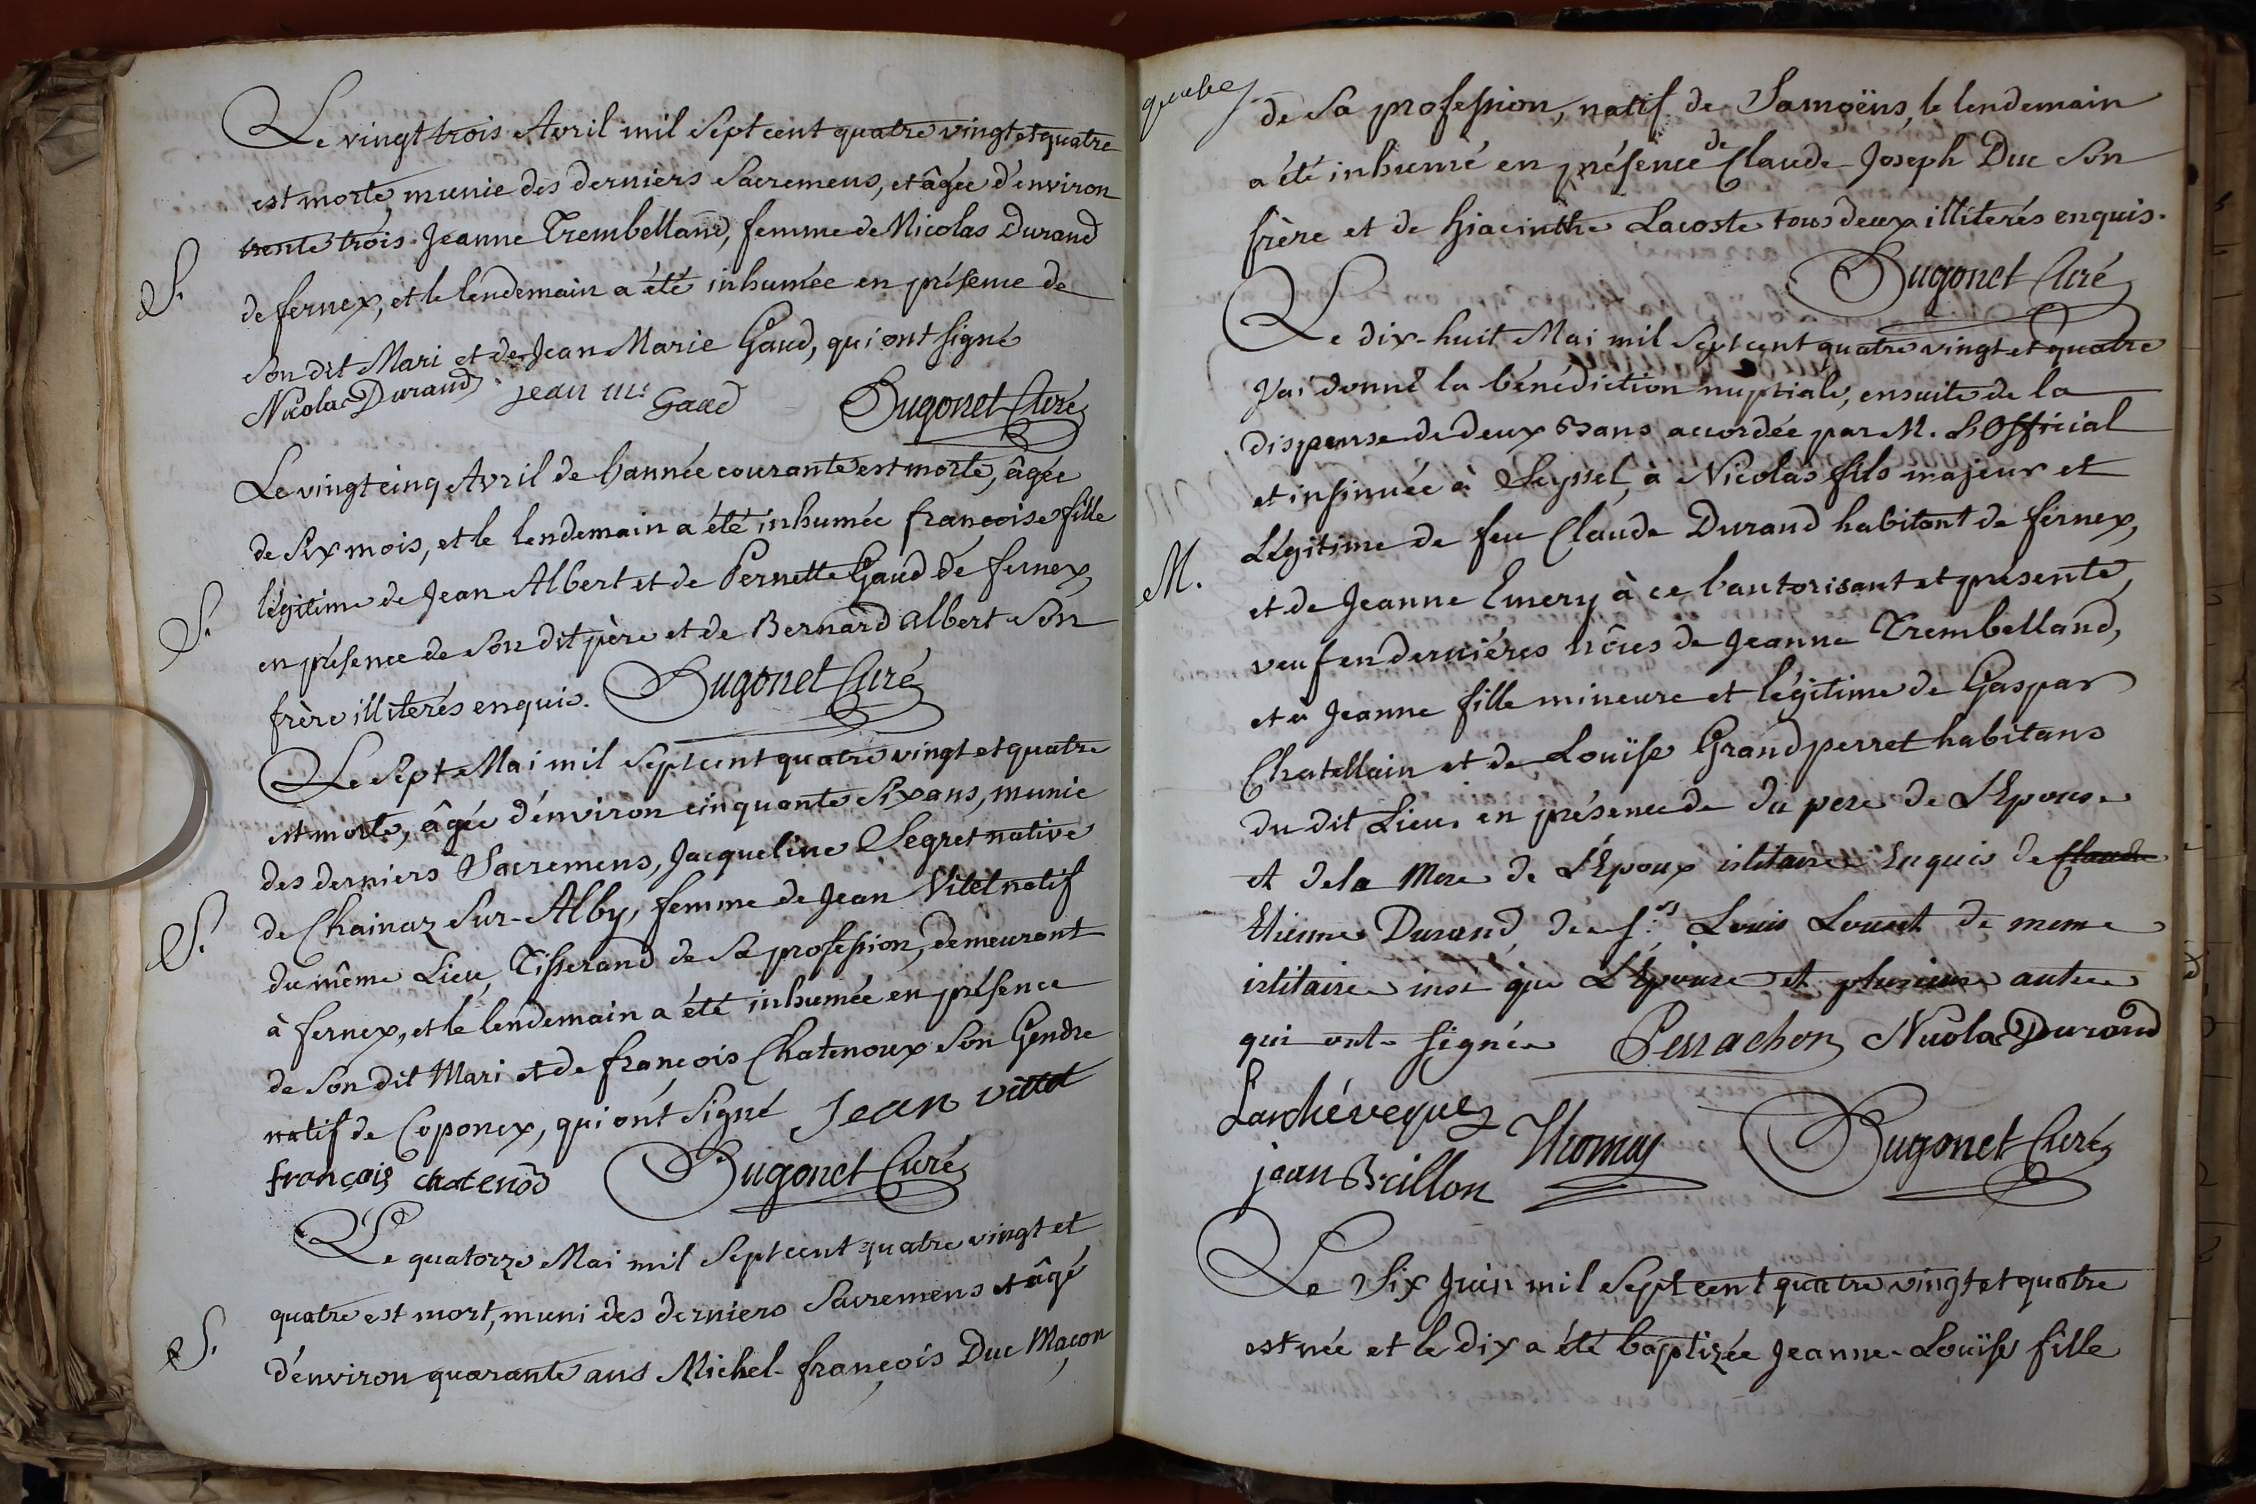 Le vingt trois Avril mil Sept cent quatre vingt et quatre
est morte, munie des derniers Sacremens, et âgée d'environ
trente trois. Jeanne Trembelland, femme de Nicolas Durand
S.
de fernex, et le lendemain a été inhumée en présence de
Son dit Mari et de Jean Marie Gaud, qui ont Signé
Nicola Durand jean m.ie Gaud Bugonet Curé
Le vingt cinq Avril de l'année courante est morte, âgée
de Six mois, et le lendemain a été inhumée françoise fille
légitime de Jean Albert et de Pernette Gaud de fernex,
S.
en présence de Son dit père et de Bernard Albert Son
frère illiterés enquis. Bugonet Curé
Le Sept Mai mil Sept cent quatre vingt et quatre
est morte, âgée d'environ cinquante Six ans, munie
des derniers Sacremens, Jacqueline Segret native
S.
de Chainaz Sur-Alby, femme de Jean Vitet natif
du même Lieu, Tisserand de Sa profession, demeurant
à fernex, et le lendemain a été inhumée en présence
de Son dit Mari et de françois Chatenoux Son Gendre
natif de Coponex, qui ont Signé Jean vittet
françois chatenod Bugonet Curé
Le quatorze Mai mil Sept cent quatre vingt et
quatre est mort, muni des derniers Sacremens et âgé
S.
d'environ quarante ans Michel-françois Duc Maçon
de Sa profession, natif de Samoëns, le lendemain
a été inhumé en présence de Claude Joseph Duc Son
frère et de hiacinthe Lacoste tous deux illiterés enquis.
Bugonet Curé
Le dix-huit Mai mil Sept cent quatre vingt et quatre
J'ai donné la bénédiction nuptiale, ensuite de la
dispense de deux Bans accordée par M. L'Official
et insinuée à Seyssel, à Nicolas fils majeur et
Légitime de feu Claude Durand habitant de fernex,
M.
et de Jeanne Emery à ce l'autorisant et présente,
veuf en derniéres nôces de Jeanne Trembelland,
et à Jeanne fille mineure et légitime de Gaspar
Chatellain et de Louïse Grandperret habitans
du dit Lieu, en présence de du pere de L'Epouse
et dela Mere de L'Epoux islitaire Enquis de Claude
Etienne Durand, de Louis de meme
islitaire insi que L'Epouse et plusieure autre
qui ont signée Perrachon Nicola Durand
Larchéveque
jean Brillon Thomas Bugonet Curé
Le Six Juin mil Sept cent quatre vingt et quatre
est née et le dix a été baptizée Jeanne-Louïse fille